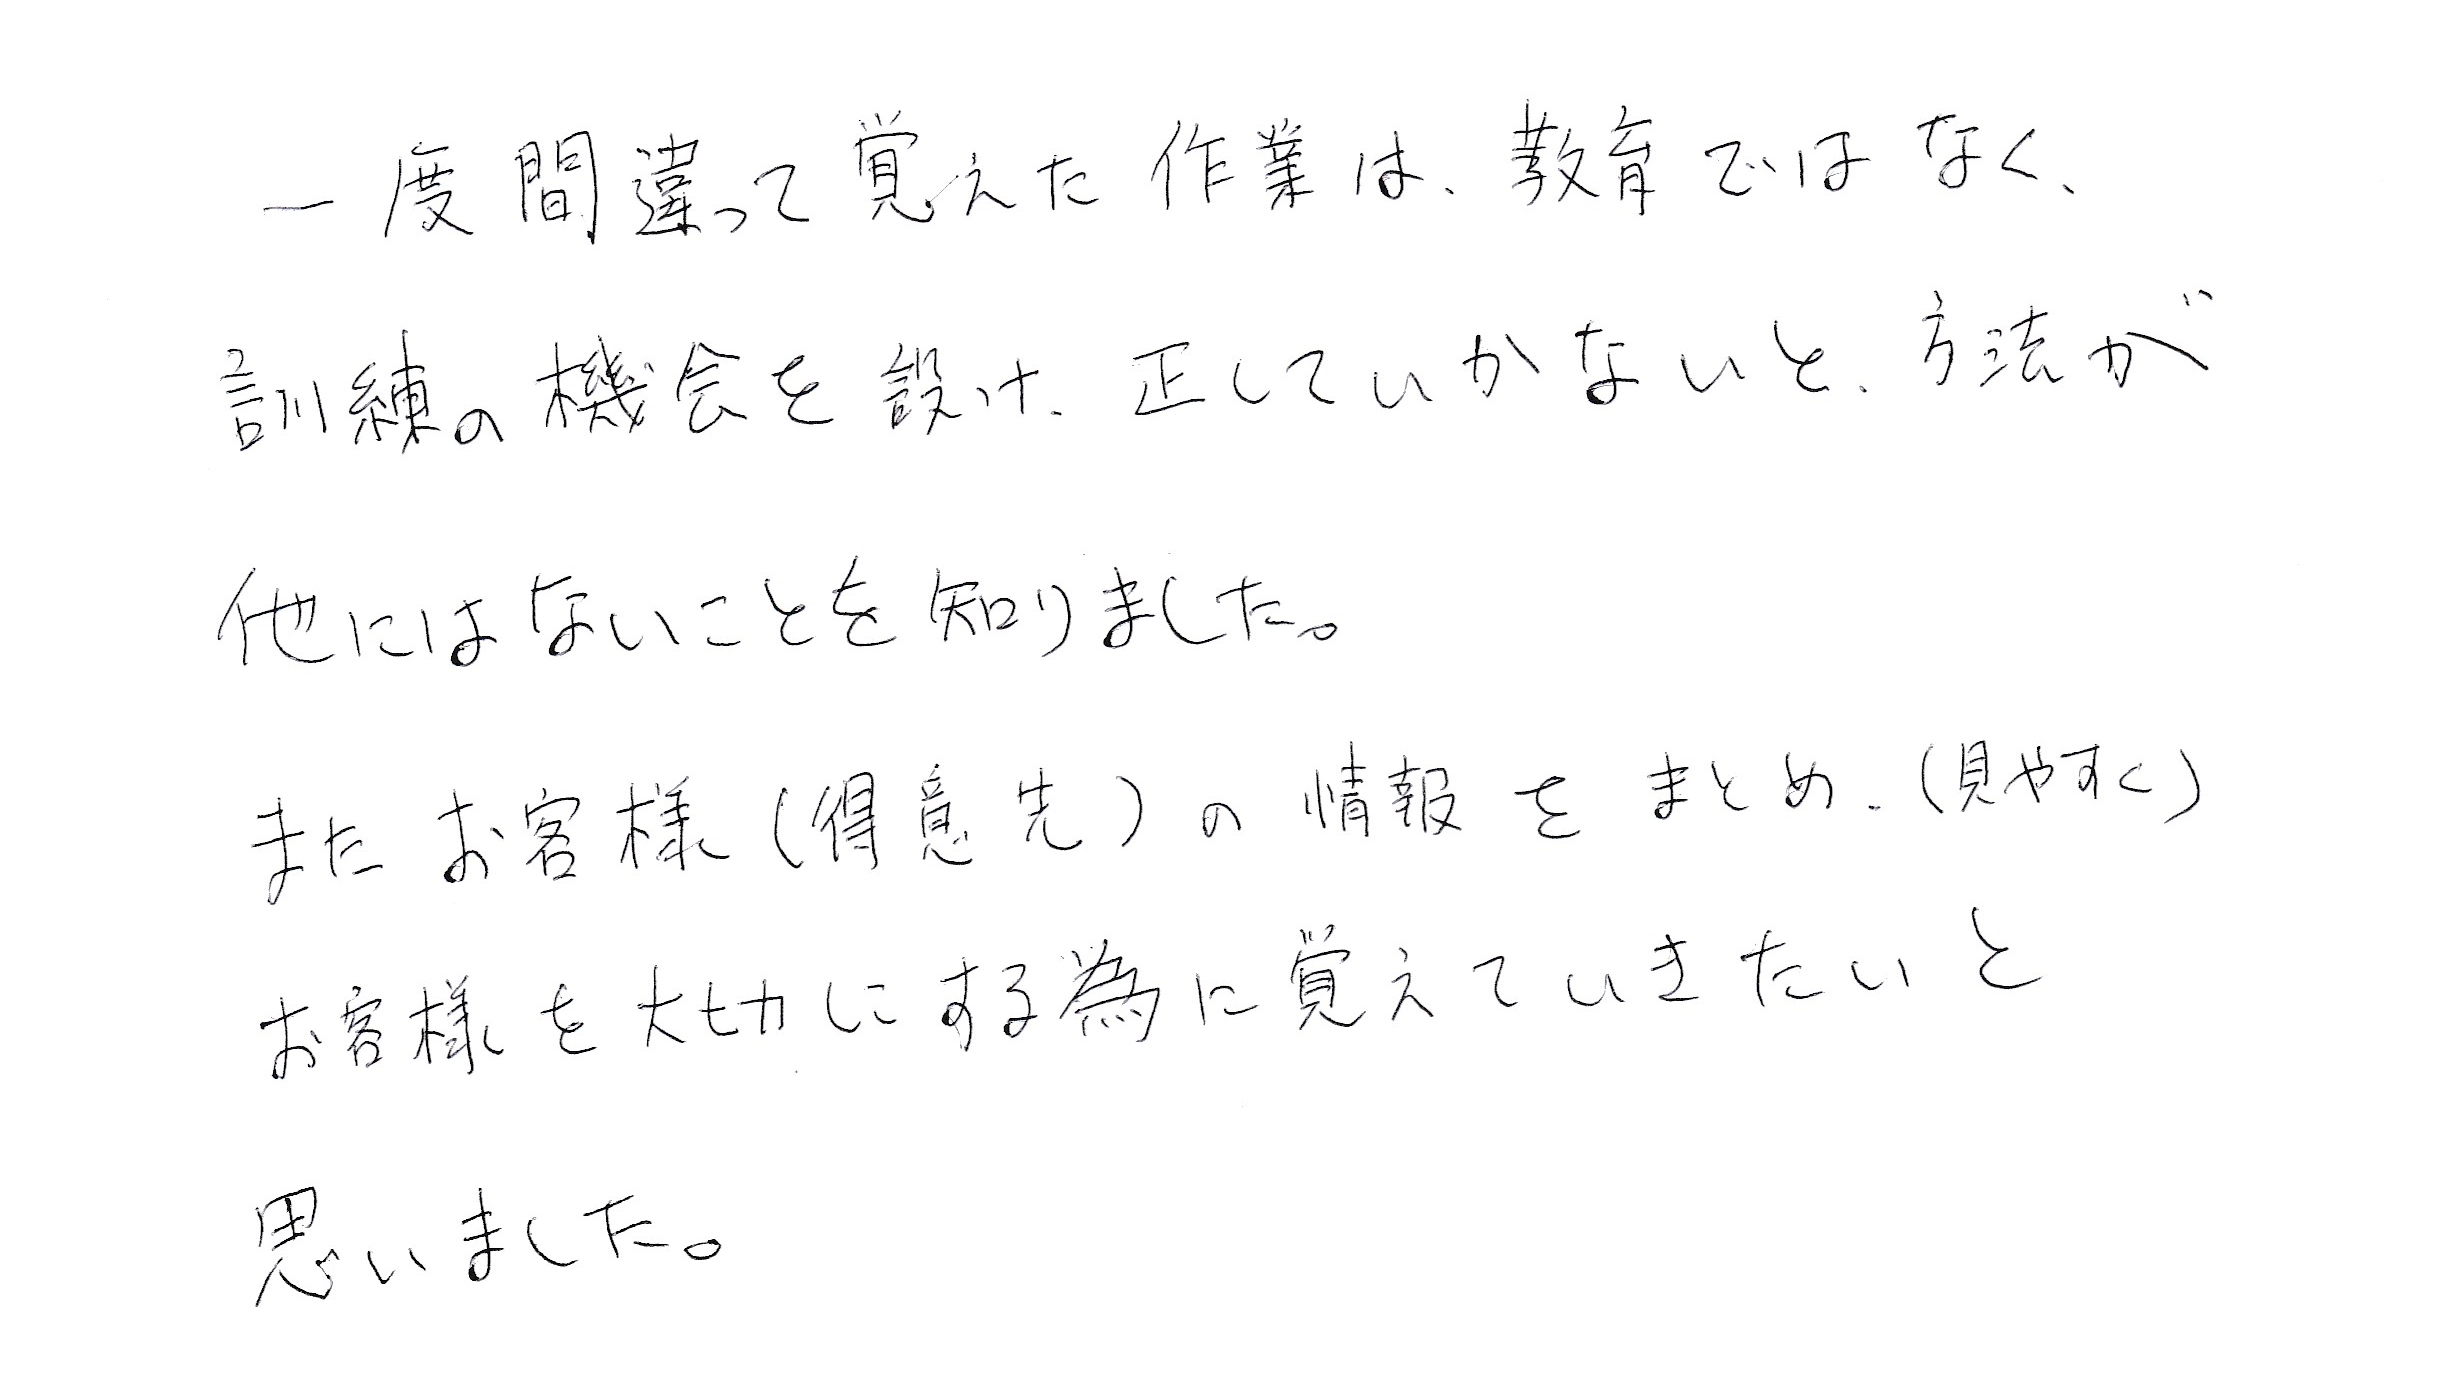 一度間違って覚えた作業は、教育ではなく、
訓練の機会を設け、正していかないと、方法が
他にはないことを知りました。
またお客様(得意先)の情報をまとめ、(見やすく)
お客様を大切にする為に覚えていきたいと
思いました。